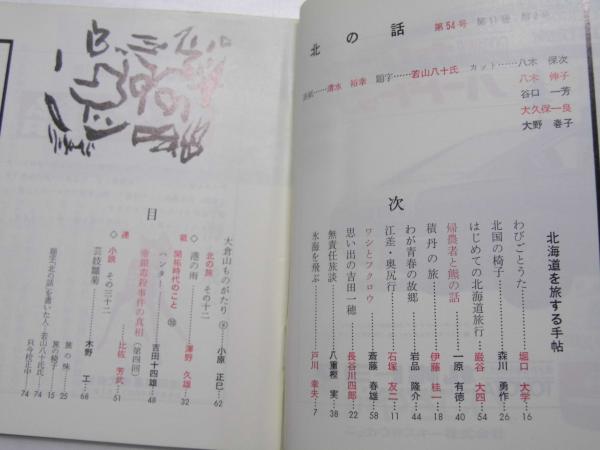 北の話 第54号
表紙……清水 裕幸 題字……若山八十氏 カット……八木 保次
八木 伸子
谷口 一芳
大久保一良
大野 春子
目次
北海道を旅する手帖
わびごとうた……堀口 大学…16
北国の椅子……森川 勇作…26
はじめての北海道旅行……巌谷 大四…54
帰農者と熊の話……一原 有徳…40
積丹の旅……伊藤 桂一…18
わが青春の故郷……岩品 隆介…44
江差・奥尻行……石塚 友二…11
ワシとフクロウ……斎藤 春雄…58
思い出の吉田一穂……長谷川四郎…22
無責任旅談……八重樫 実…38
氷海を飛ぶ……戸川 幸夫…7
大倉山ものがたり……小原 正巳…62
北の旅 その十二
港の雨……澤野 久雄…32
◇連載
開拓時代のこと
ハンター……吉田十四雄…48
帝銀毒殺事件の真相(第四回)……比佐 芳武…51
◇連
小説 その三十二
芸妓雛菊……木野 工…68
旅の味…25
旅の椅子…15
随筆「北の話」を書いた人・若山八十氏氏…74
只今校正中…74